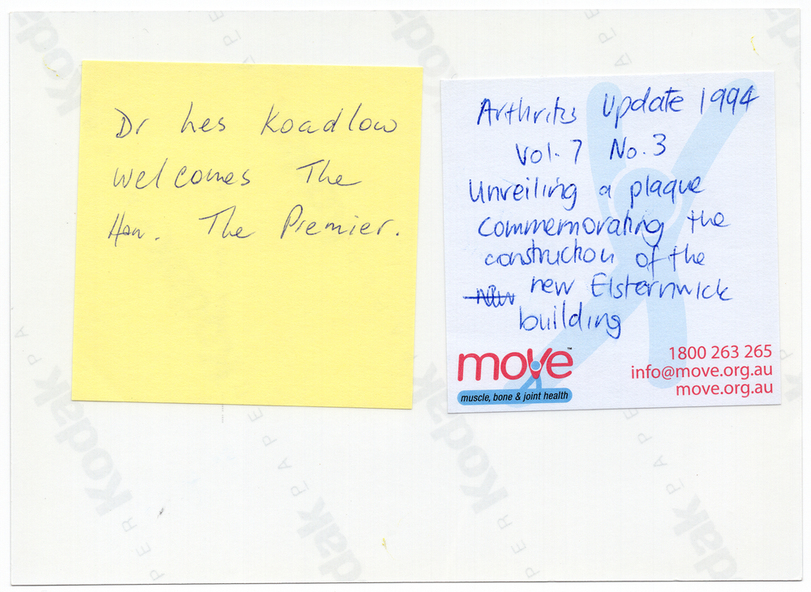 Dr Les Koadlow
welcomes The
Hon. The Premier.
Arthritis Update 1994
Vol. 7 No. 3
Unveiling a plaque
commemorating the
construction of the
new Elsternwick
building
move™
muscle, bone & joint health
1800 263 265
info@move.org.au
move.org.au
Kodak
PAPER